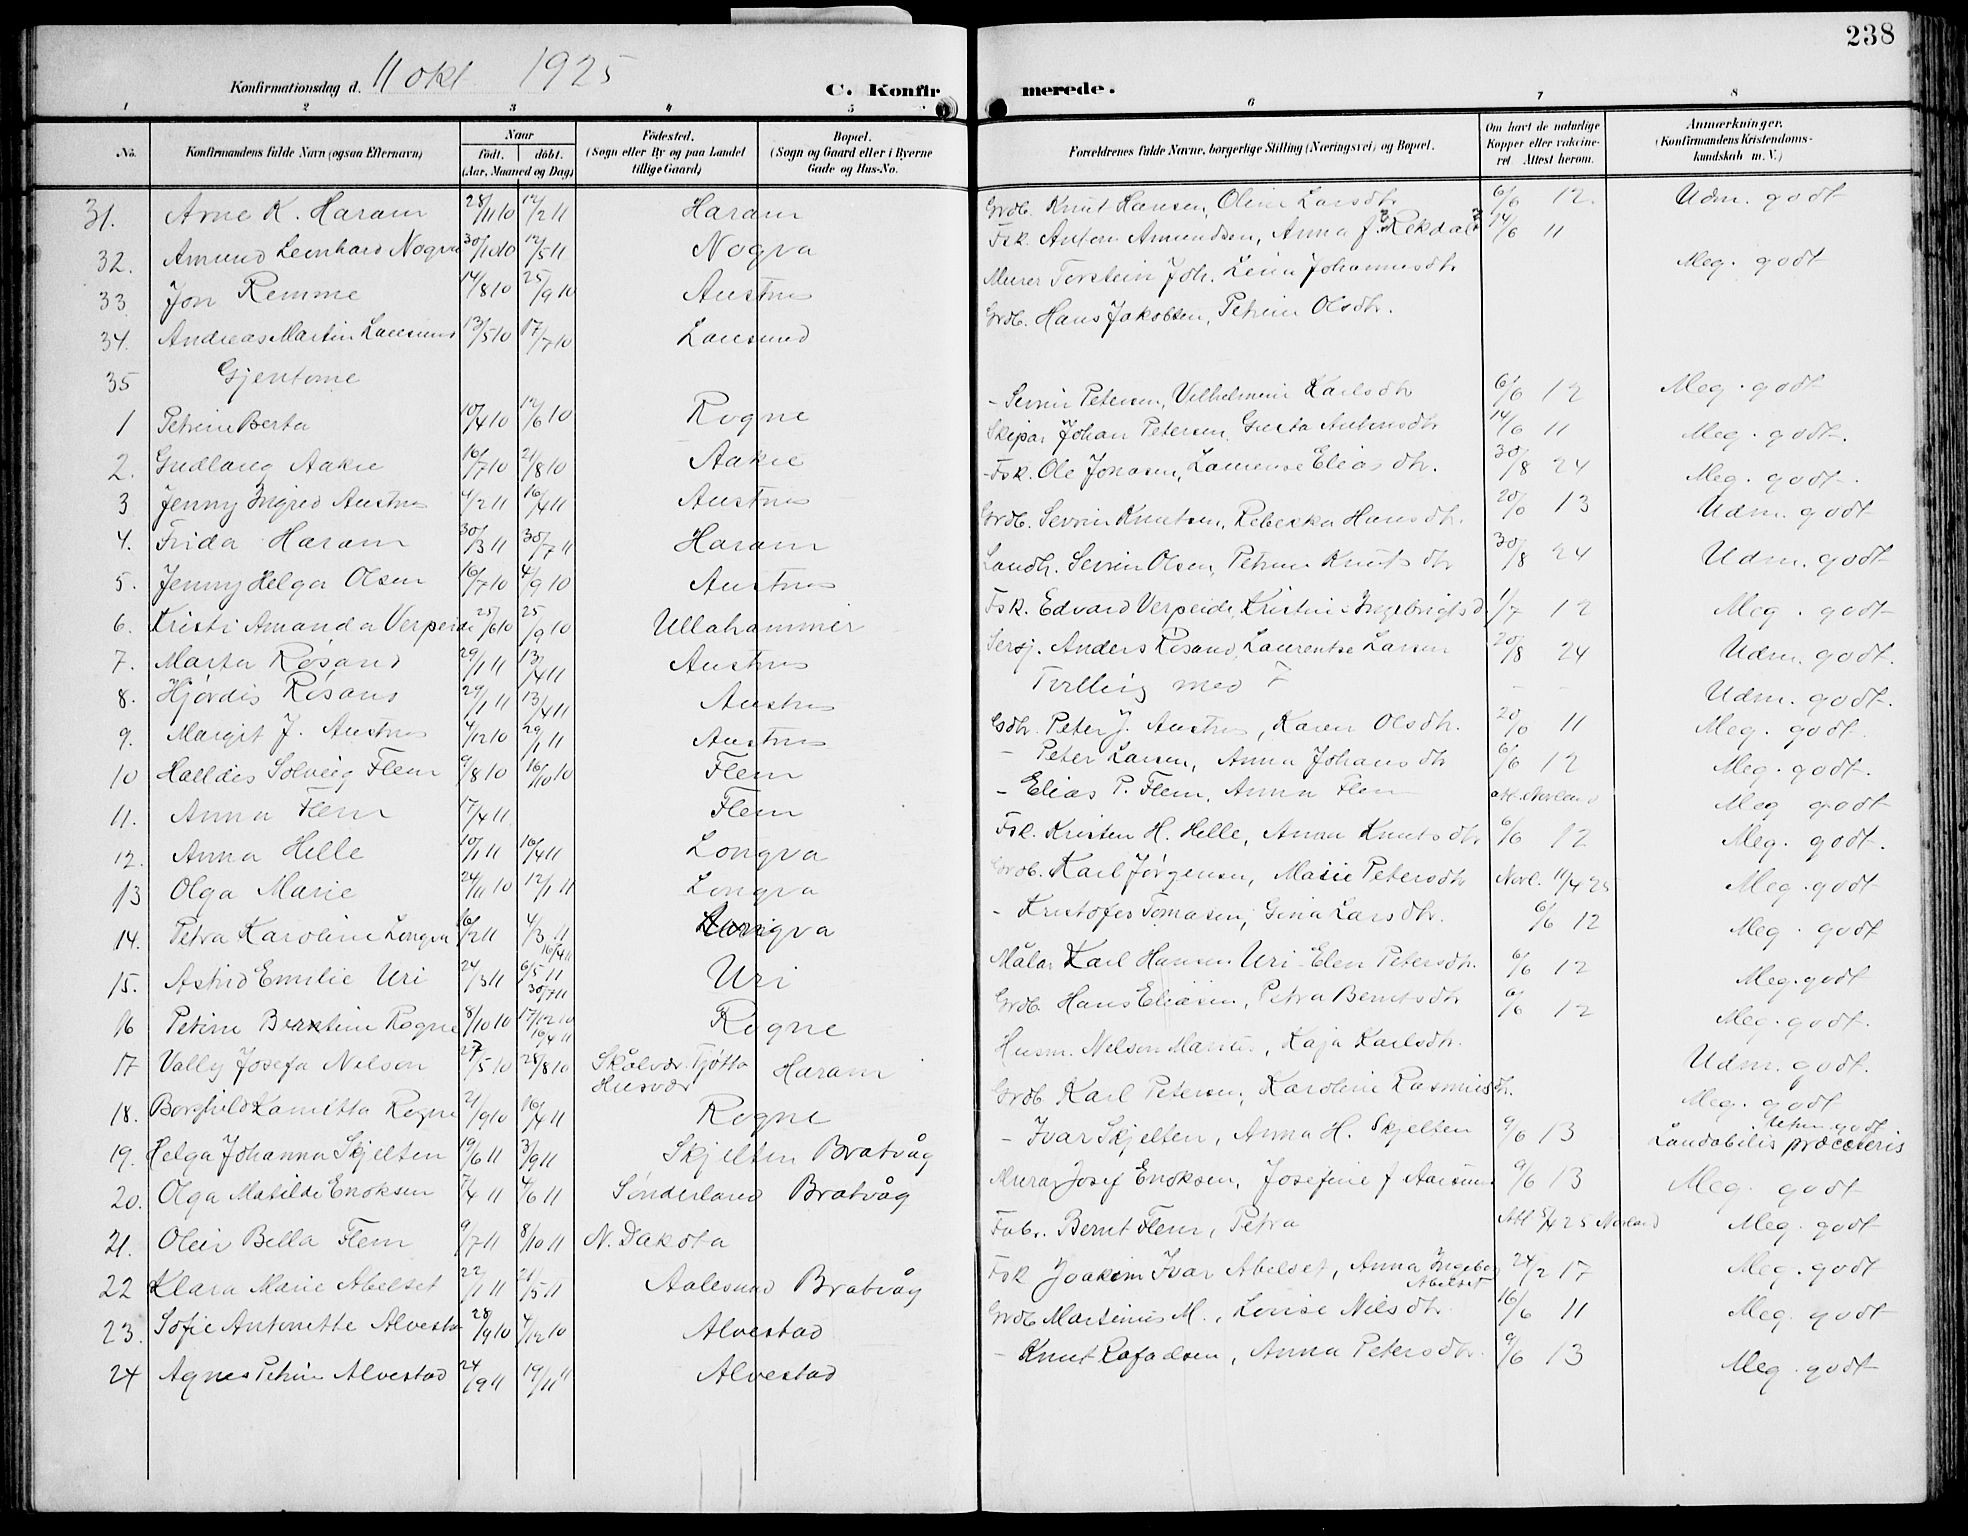 238
Konfirmationsdag d. 11 okt 1925
C. Konfirmerede.
1 2 3 4 5 6 7 8
No.
Konfirmandens fulde Navn (ogsaa Efternavn)
Naar
födt. döbt.
(Aar, Maaned og Dag)
Födested.
(Sogn eller By og paa Landet
tillige Gaard)
Bopæl.
(Sogn og Gaard eller i Byerne
Gade og Hus-No.
Forældrenes fulde Navne, borgerlige Stilling (Næringsvei) og Bopæl.
Om havt de naturlige
Kopper eller vakcine-
ret Attest herom.
Anmærkninger.
(Konfirmandens Kristendoms-
kundskab m. V.)
31. Arne K. Haram 28/11 10 12/2 11 Haram Grdb. Knut Hansen, Oline Larsdtr 6/6 12. Udm. godt
32. Amund Leonhard Nogva 30/10 10 12/5 11 Nogva Fsk. Anton Amundsen, Anna J. Rekdal 14/6 11
33 Jon Remme 14/8 10 25/9 10 Austnes Murer Torstein Joh. Lena Johannesdtr Meg. godt
34. Andreas Martin Lausund 13/5 10 17/7 10 Lausund Grdb. Hans Jakobsen, Petrine Olsdtr.
35 Gjentorne
1 Petrine Berta 10/4 10 12/6 10 Rogne - Severin Petersen, Vilhelmine Karlsdtr 6/6 12 Meg. godt
2. Gudlaug Aakre 16/7 10 21/8 10 Aakre Skipar Johan Petersen, Gusta Antonsdtr 14/6 11 Meg. godt.
3 Jenny Ingrid Austnes 4/2 11 16/4 11 Austnes Fsk. Ole Jonasen, Laurense Eliasdtr. 30/8 24 Meg. godt.
4. Frida Haram 30/3 11 30/7 11 Haram Grdb. Severin Knutsen, Rebekka Hansdtr. 20/6 13 Udm. godt
5. Jenny Helga Olsen 16/7 10 4/9 10 Austnes Landh. Severin Olsen, Petrine Knutsdtr 30/8 24 Udm. godt
6. Kristi Amanda Verpeide 25/6 10 25/9 10 Ullahammer Fsk. Edvard Verpeide, Kristine Ingebrigtsd. 1/7 12 Meg. godt
7. Marta Røsand 29/1 11 13/4 11 Austnes Sersj. Anders Røsand, Laurentse Larsen 20/8 24 Udm. godt.
8. Hjørdis Røsand 29/1 11 13/4 11 Austnes Tvilling med 7 - - Udm. godt.
9. Margit J. Austnes 4/12 10 29/1 11 Austnes Gdbr. Peter J. Austnes, Karen Olsdtr. 20/6 11 Meg. godt.
10 Halldis Solveig Flem 9/8 10 16/10 10 Flem - Peter Larsen, Anna Johansdtr 6/6 12 Meg. godt.
11. Anna Flem 17/4 11 Flem - Elias P. Flem, Anna Flem att. Norland Meg godt
12. Anna Helle 10/1 11 16/4 11 Longva Fsk. Kristen H. Helle, Anna Knutsdtr 6/6 12 Meg. godt.
13 Olga Marie 24/11 10 12/1 11 Longva Grdb. Karl Jørgensen, Marie Petersdtr Norl. 11/4 25 Meg. godt
14. Petra Karoline Longva 16/2 11 4/3 11 Longva - Kristofer Tomasen, Gina Larsdtr. 6/6 12 Meg. godt
16/4 11
15. Astrid Emilie Uri 24/3 11 6/5 11 Uri Målar Karl Hansen Uri - Elen Petersdtr. 6/6 12 Meg. godt
30/7 11
16 Petrine Berntine Rogne 8/10 10 17/12 10 Rogne Grdb. Hans Eliasen, Petra Berntsdtr 6/6 12 Meg. godt.
16/4 11
17 Vally Josefa Nelson 27/5 10 28/8 10 Skålvær. Tjøtta Husvær Haram Husm. Nelson Marius, Kaja Karlsdtr. Udm. godt.
18. Borghild Kamitta Rogne 21/9 10 16/4 11 Rogne Grdb Karl Petersen, Karoline Rasmusdtr. Meg. godt
19. Helga Johanna Skjelten 19/6 11 3/9 11 Skjelten Bratvåg - Ivar Skjelten, Anna H. Skjelten 9/6 13 Udm. godt Laudabilis præceteris
20. Olga Matilde Enoksen 7/4 11 4/6 11 Sønderland Bratvåg Murar Josef Enoksen, Josefine f Aarsund 9/6 13 Meg. godt
21. Olein Bella Flem 9/7 11 8/10 11 N. Dakota Fab. Bernt Flem, Petra Att 5/4 25 Norland Meg. godt
22 Klara Marie Abelset 22/1 11 21/5 11 Aalesund Bratvåg Fsk Joakim Ivar Abelset, Anna Ingeborg Abelset 24/2 17 Meg. godt
23. Sofie Antonette Alvestad 28/9 10 4/12 10 Alvestad Grdb Martinus M., Lovise Nilsdtr. 16/6 11 Meg. godt
24 Agnes Petrine Alvestad 24/9 11 19/11 11 Alvestad - Knut Rafadsen, Anna Petersdtr. 9/6 13 Meg. godt